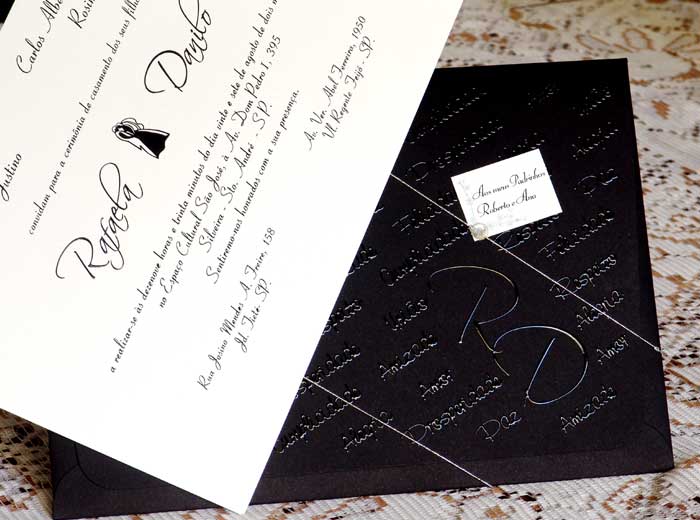 Carlos Albe
Rosin
Justino
convidam para a cerimônia de casamento dos seus filh
Rafaela
Danilo
a realizar-se às dezenove horas e trinta minutos do dia vinte e sete de agosto de dois m
no Espaço Cultural São José, à Av. Dom Pedro I, 395
Silveira - Sto. André - SP.
Sentiremo-nos honrados com a sua presença.
Rua Josino Mendes A. Freire, 158
Jd. Tietê SP.
Av. Ver. Abel Ferreira, 1950
Vl. Regente Feijó - SP.
Aos meus Padrinhos
Roberto e Ana
R D
Prosperidade
Felicidade
Respeito
Alegria
Amor
Amizade
União
Amizade
Amor
Prosperidade
Paz
Alegria
Amizade
Paz